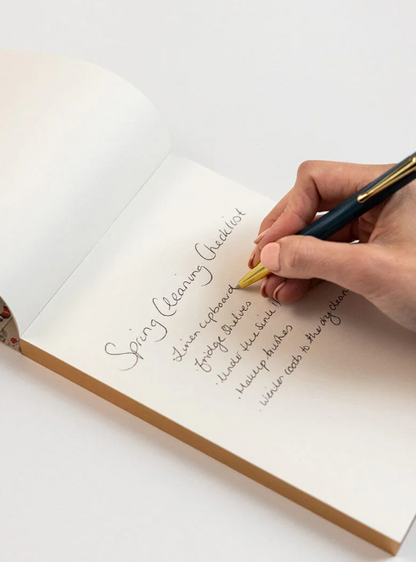 Spring Cleaning Checklist
Linen cupboard
fridge shelves
· Under the sink
· Makeup brushes
· Winter coats to the dry clean